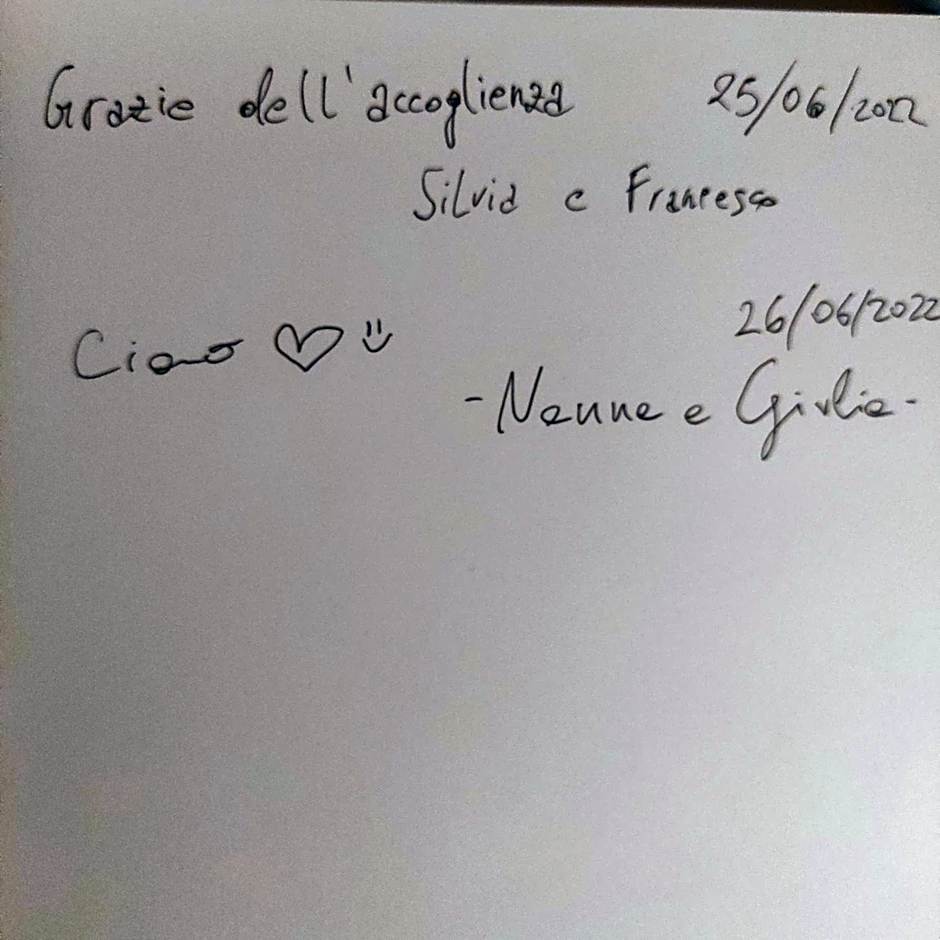 Grazie dell'accoglienza 25/06/2022
Silvia e Francesco
Ciao ♡ :)
26/06/2022
- Nanna e Giulia -